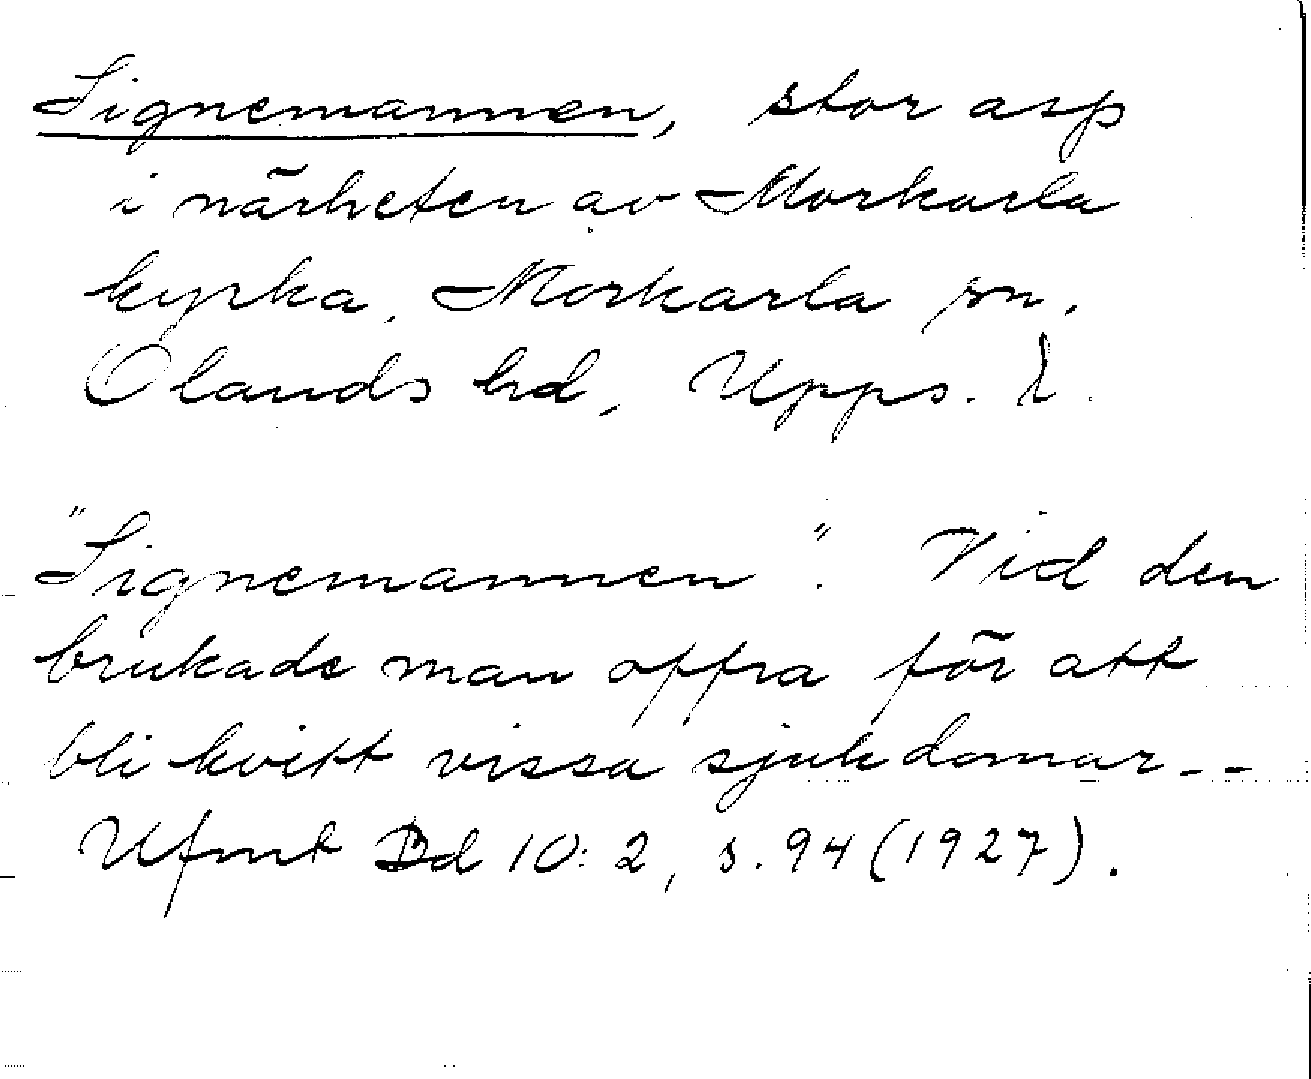 Signemannen, stor asp
i närheten av Morkarla
kyrka, Morkarla sn,
Olands hd, Upps. l.
"Signemannen". Vid den
brukade man offra för att
bli kvitt vissa sjukdomar--
Ufmt Bd 10:2, s. 94 (1927).